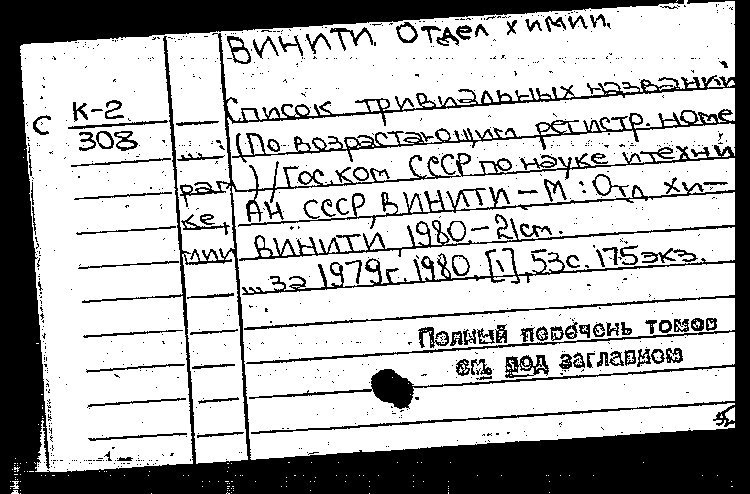 ВИНИТИ. Отдел химии.
С К-2 Список тривиальных названий
308 ... : (По возрастающим регистр. номе
рам ) / Гос. ком СССР по науке и техни
ке, АН СССР, ВИНИТИ – М : Отд. хи-
мии ВИНИТИ, 1980. – 21 см.
... за 1979г. 1980. [1], 53 с. 175 экз.
Полный перечень томов
см. под заглавием